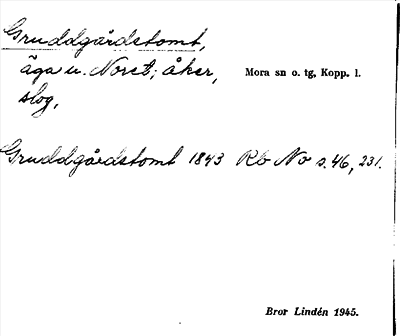 Gruddgårdstomt,
äga u. Noret; åker,
slog.
Mora sn o. tg, Kopp. l.
Gruddgårdstomt 1843 Rb No s. 46, 231.
Bror Lindén 1945.